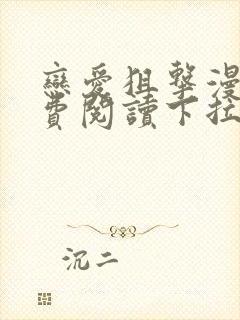 戀愛狙擊漫
費閱讀下拉
沉二